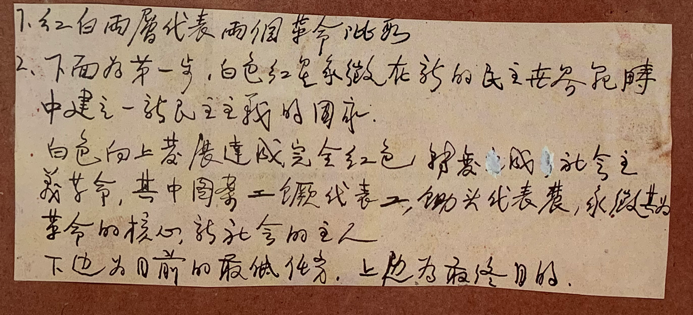 1. 红白两層代表兩個革命阶段
2. 下面为第一步，白色红星象徵在新的民主世界範疇
中建立一新民主主義的国家.
白色向上發展達成完全红色 轉变 成 社会主
義革命，其中图案工 代表工，锄头代表農，象徵其为
革命的核心 新社会的主人
下边为目前的最低任务. 上边为最终目的.